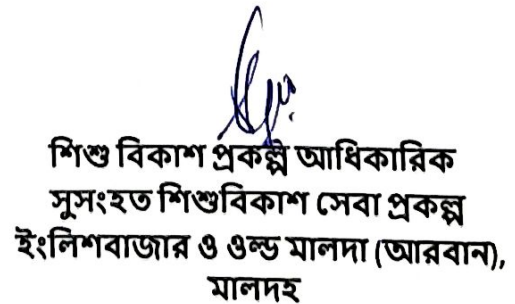 শিশু বিকাশ প্রকল্প আধিকারিক
সুসংহত শিশুবিকাশ সেবা প্রকল্প
ইংলিশবাজার ও ওল্ড মালদা (আরবান),
মালদহ